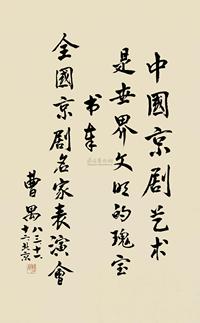 中國京剧艺术
是世界文明的瑰宝
书奉
全國京剧名家表演會
曹禺
八三、十六、
十二北京